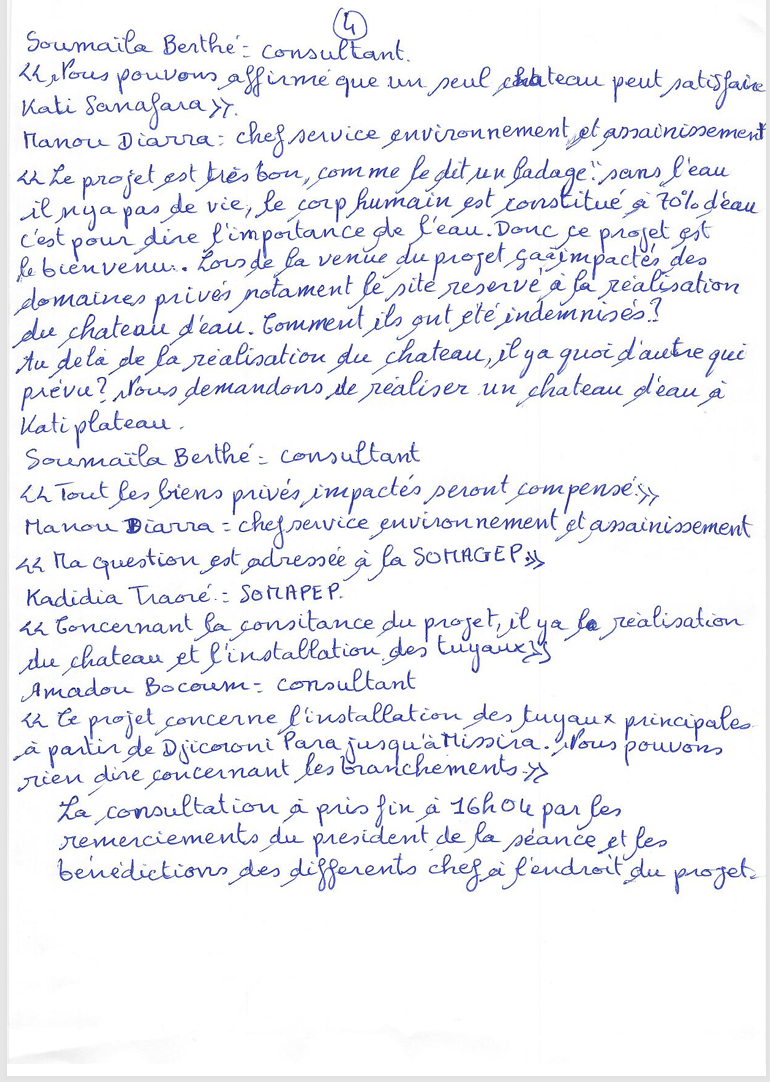 4
Soumaïla Berthé = consultant.
<< Nous pouvons affirmé que un seul chateau peut satisfaire
Kati Sanafara >>.
Manou Diarra : chef service environnement et assainissement
<< Le projet est très bon, comme le dit un ladage : " sans l'eau
il n'ya pas de vie, le corp humain est constitué à 70% d'eau
c'est pour dire l'importance de l'eau. Donc ce projet est
le bienvenu. Lors de la venue du projet ça à impactés des
domaines privés notament le site reservé à la réalisation
du chateau d'eau. Comment ils ont été indemnisés ?
Au delà de la réalisation du chateau, il ya quoi d'autre qui
prévu ? Nous demandons de réaliser un chateau d'eau à
Kati plateau.
Soumaïla Berthé = consultant
<< Tout les biens privés impactés seront compensé. >>
Manou Diarra = chef service environnement et assainissement
<< Ma question est adressée à la SOMAGEP. >>
Kadidia Traoré = SOMAPEP.
<< Concernant la consitance du projet, il ya la réalisation
du chateau et l'installation des tuyaux >>
Amadou Bocoum = consultant
<< Ce projet concerne l'installation des tuyaux principales
à partir de Djicoroni Para jusqu'à Missira. Nous pouvons
rien dire concernant les branchements. >>
La consultation à pris fin à 16h04 par les
remerciements du president de la séance et les
bénédictions des differents chef à l'endroit du projet.